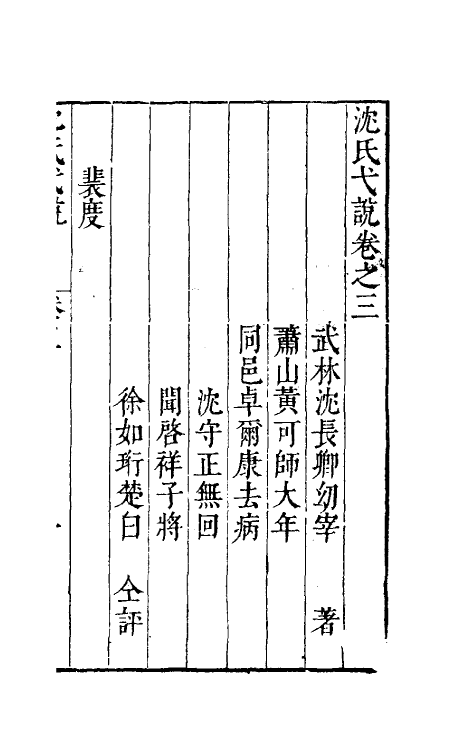 沈氏弋說卷之三
武林沈長卿幼宰 著
蕭山黃可師大年
同邑卓爾康去病
沈守正無回
聞啓祥子將
徐如珩楚白 仝評
裴度
沈氏弋說 卷三 一